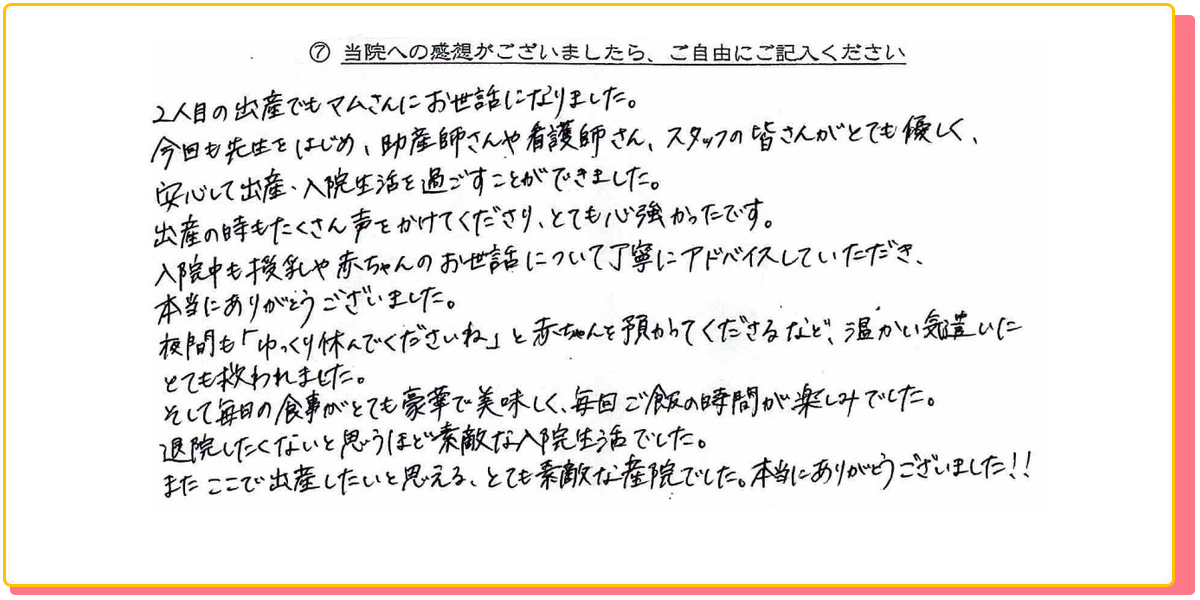 ⑦ 当院への感想がございましたら、ご自由にご記入ください
2人目の出産でもマムさんにお世話になりました。
今回も先生をはじめ、助産師さんや看護師さん、スタッフの皆さんがとても優しく、
安心して出産・入院生活を過ごすことができました。
出産の時もたくさん声をかけてくださり、とても心強かったです。
入院中も授乳や赤ちゃんのお世話について丁寧にアドバイスしていただき、
本当にありがとうございました。
夜間も「ゆっくり休んでくださいね」と赤ちゃんを預かってくださるなど、温かい気遣いに
とても救われました。
そして毎日の食事がとても豪華で美味しく、毎回ご飯の時間が楽しみでした。
退院したくないと思うほど素敵な入院生活でした。
またここで出産したいと思える、とても素敵な産院でした。本当にありがとうございました!!